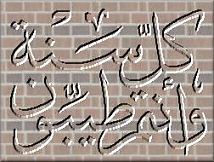 كل سنة
وأنتم طيبون